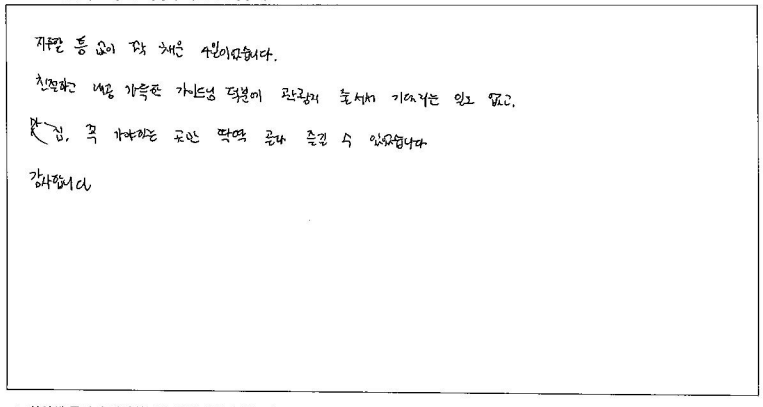 지루할 틈 없이 꽉 채운 4일이었습니다.
친절하고 내공 가득한 가이드님 덕분에 관광지 줄서서 기다리는 일도 없고,
맛집, 꼭 가야하는 곳만 딱딱 골라 즐길 수 있었습니다
감사합니다